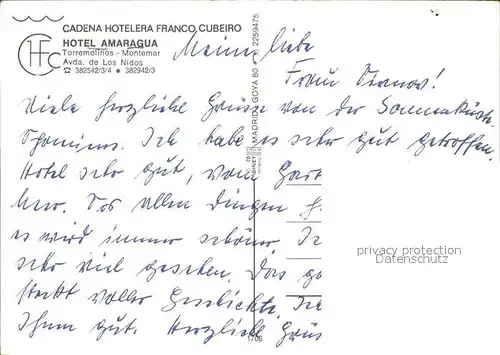 CADENA HOTELERA FRANCO CUBEIRO
HOTEL AMARAGUA
Torremolinos - Montemar
Avda. de Los Nidos
☎ 382542/3/4 ● 382942/3
HFC
MADRID GOYA 80 2259475
Meine liebe
Frau
Viele herzliche Grüsse von der Sonnenküste
Spaniens. Ich habe es sehr gut getroffen.
Hotel sehr gut, vom
Meer. Vor allen Dingen
es wird immer schöner. Ich
sehr viel gesehen. Das
steckt voller Geschichte. Ich
Ihnen gut. Herzliche Grüs
privacy protection
Datenschutz
1706